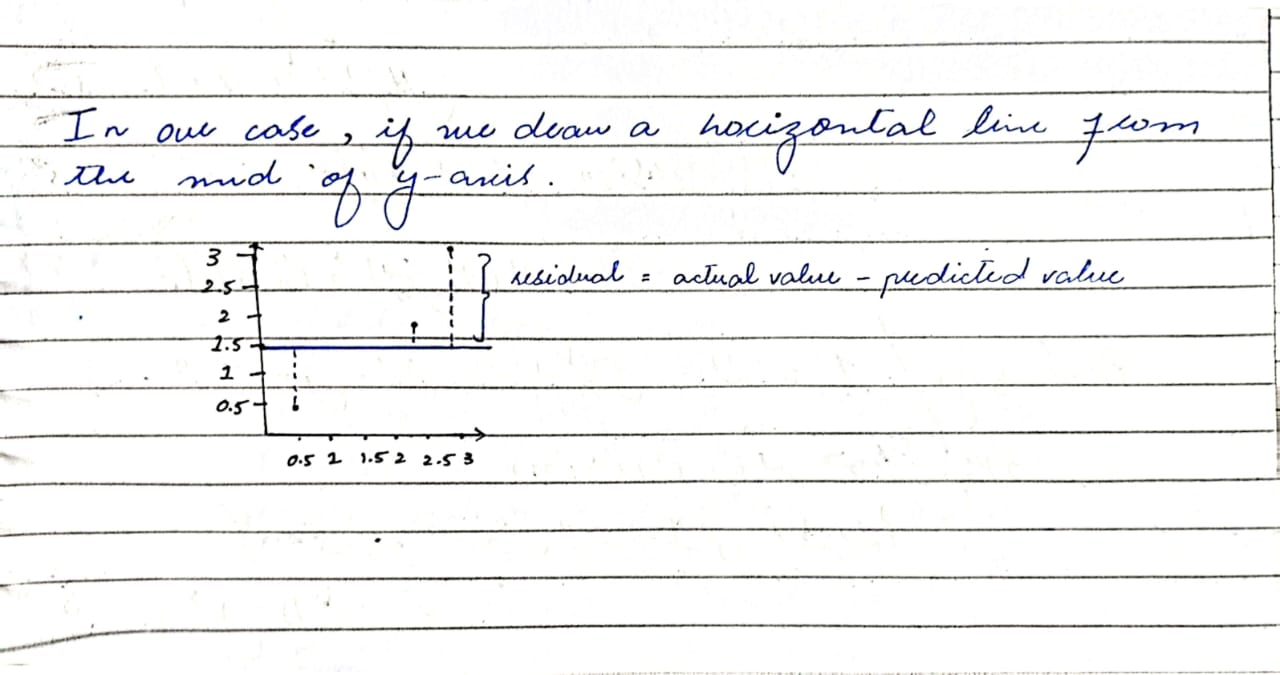 In our case, if we draw a horizontal line from
the mid of y-axis.
3
2.5
2
1.5
1
0.5
residual = actual value - predicted value
0.5 1 1.5 2 2.5 3